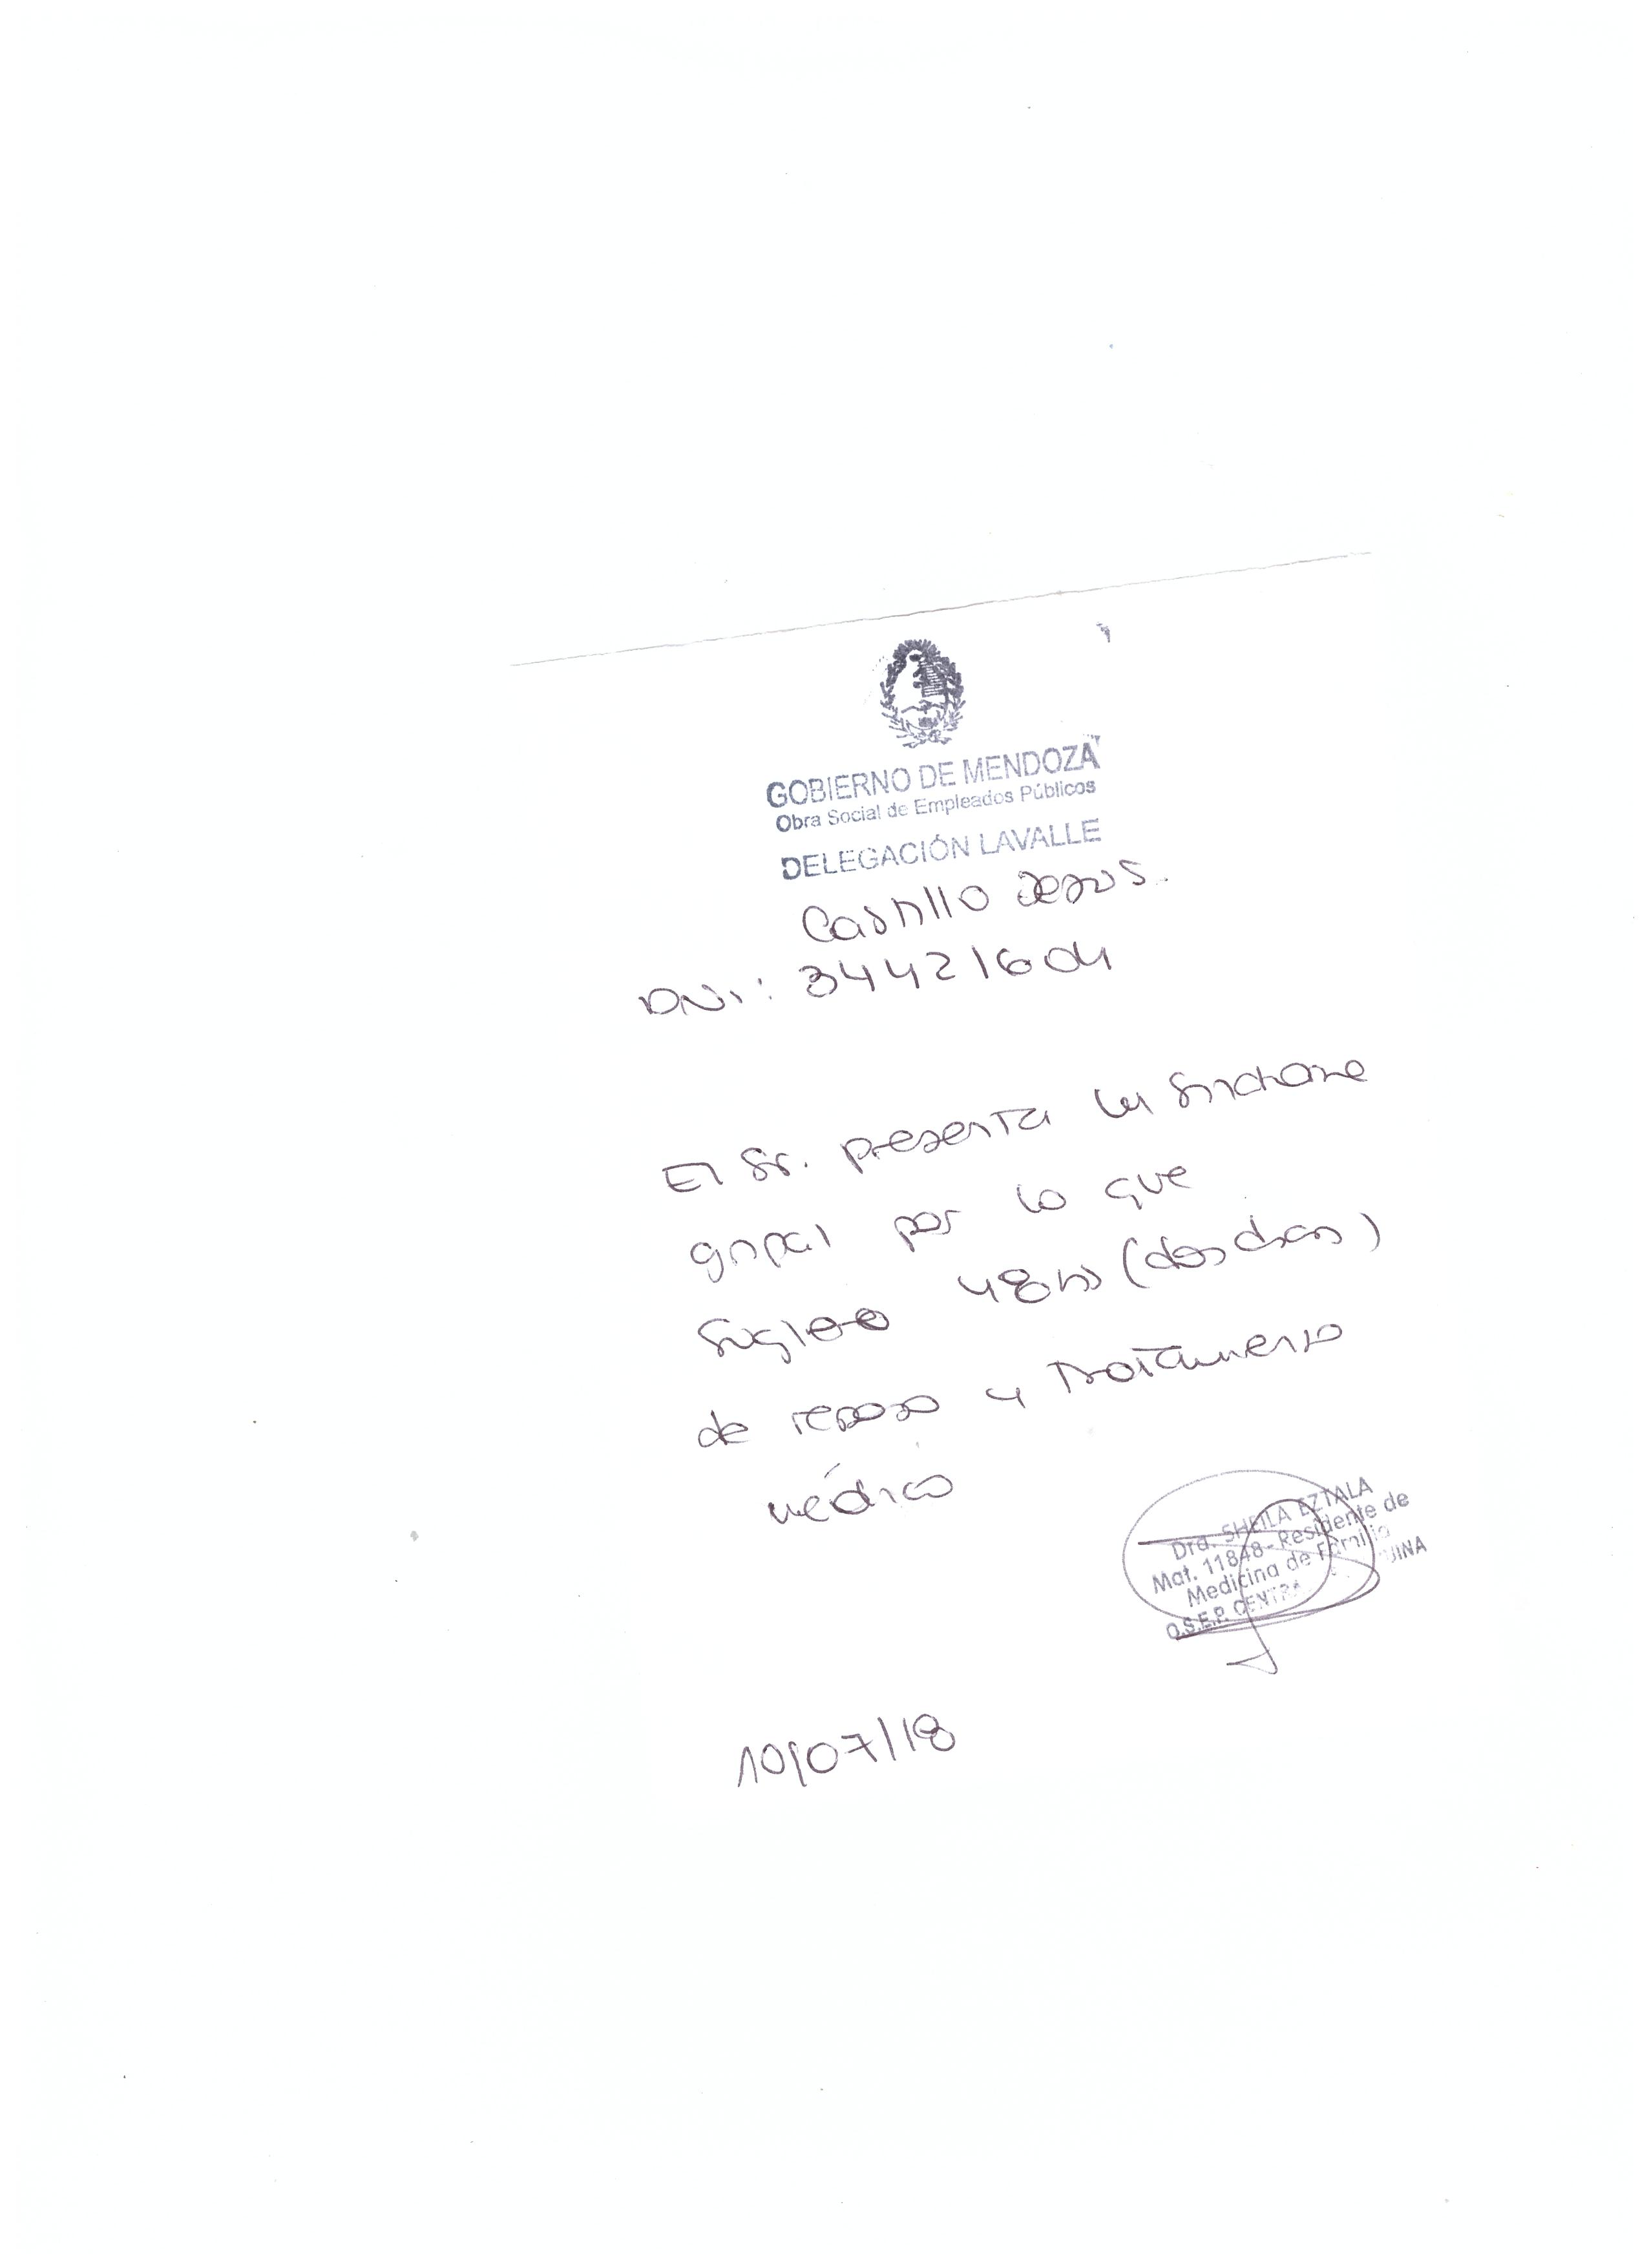 GOBIERNO DE MENDOZA
Obra Social de Empleados Públicos
DELEGACIÓN LAVALLE
Castillo Jesus.
DNI: 34421604
El Sr. presenta un sindrome
gripal por lo que
sugiero 48hs (dos dias)
de reposo y tratamiento
médico
Dra. SHEILA EZTALA
Mat. 11848 - Residente de
Medicina de Familia
O.S.E.P. CENTRA
10/07/18